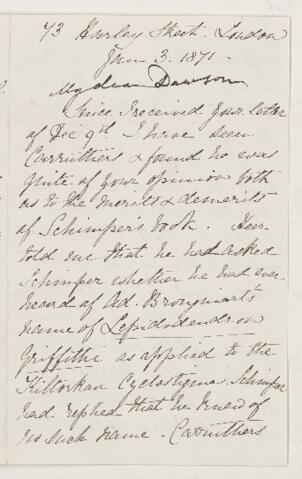 73 Harley Street. London
Jan 3. 1871.
My dear Dawson
Since I received your letter
of Dec 9th I have seen
Carruthers & found he was
quite of your opinion both
as to the merits & demerits
of Schimper's book. Heer
told me that he had asked
Schimper whether he had ever
heard of Ad. Brongniart's
name of Lepidodendron
Griffithii as applied to the
Kiltorkan Cyclostigma. Schimper
had replied that he knew of
no such name. Carruthers